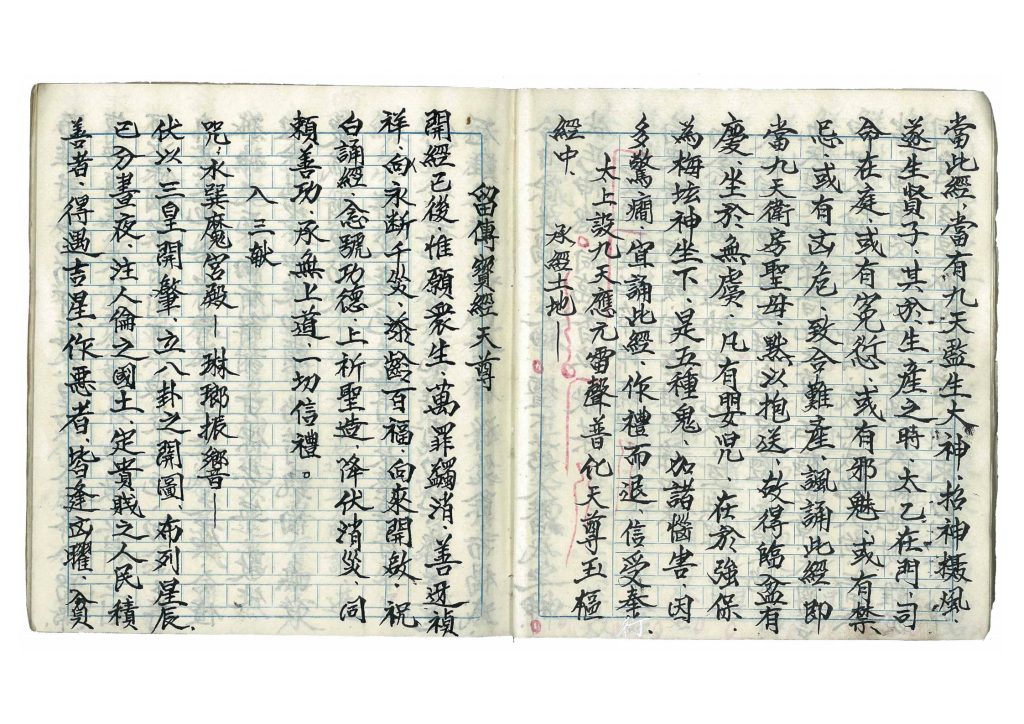 當此經、當有九天監生大神、招神攝風、
遂生賢子、其於生產之時、太乙在門、司
命在庭、或有冤愆、或有邪魅、或有禁
忌、或有凶危、致合難產、諷誦此經、即
當九天衛房聖母、默以抱送、故得臨盆有
慶、坐於無虞、凡有嬰児、在於強保、
為梅坛神坐下、是五種鬼、加諸惱害、因
多驚癇、宜誦此經、作禮而退、信受奉行、
太上設九天應元雷聲普化天尊玉樞
經中、 承經土地—
留傳寶經天尊
開經已後、惟願衆生、萬罪蠲消、善迓禎
祥、向永断千災、添齡百福、向來開啟、祝
白誦經、念號功德、上祈聖造、降伏消災、同
頼善功、承無上道、一切信禮。
入三献
咒、水巽魔宮殿—琳瑯振響—
伏以、三皇開肇、立八卦之開圖、布列星辰、
已分晝夜、注人倫之國土、定貴賎之人民、積
善者、得遇吉星、作惡者、皆逢凶曜、貧